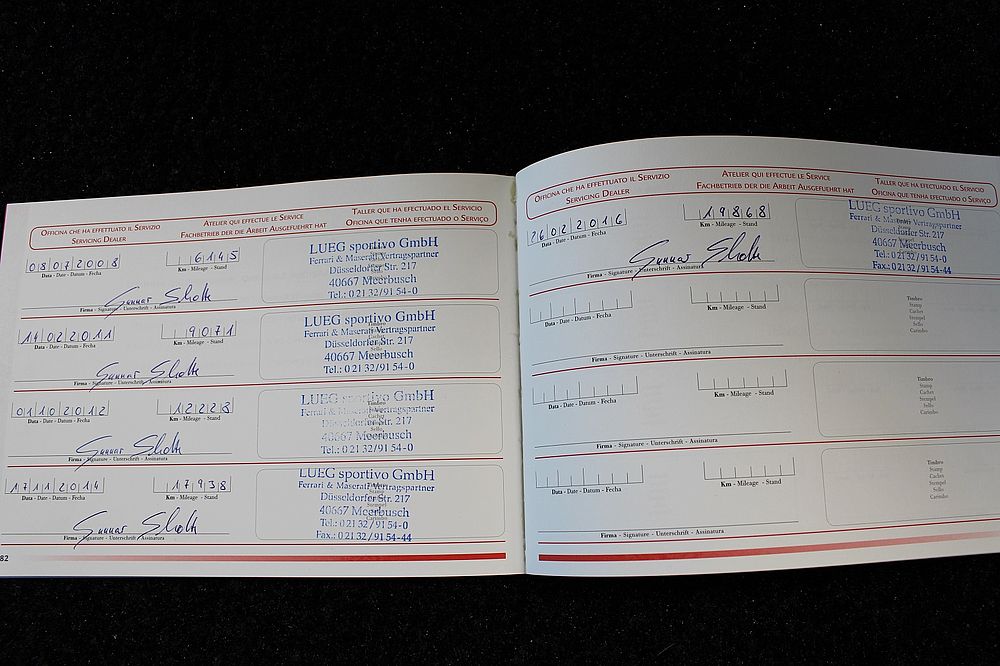 OFFICINA CHE HA EFFETTUATO IL SERVIZIO
SERVICING DEALER
ATELIER QUI EFFECTUE LE SERVICE
FACHBETRIEB DER DIE ARBEIT AUSGEFUEHRT HAT
TALLER QUE HA EFECTUADO EL SERVICIO
OFICINA QUE TENHA EFECTUADO O SERVIÇO
08072008
Data - Date - Datum - Fecha
6145
Km - Mileage - Stand
Firma - Signature - Unterschrift - Assinatura
LUEG sportivo GmbH
Ferrari & Maserati Vertragspartner
Düsseldorfer Str. 217
40667 Meerbusch
Tel.: 0 21 32 / 91 54 - 0
14022011
Data - Date - Datum - Fecha
9071
Km - Mileage - Stand
Firma - Signature - Unterschrift - Assinatura
LUEG sportivo GmbH
Ferrari & Maserati Vertragspartner
Düsseldorfer Str. 217
40667 Meerbusch
Tel.: 0 21 32 / 91 54 - 0
01102012
Data - Date - Datum - Fecha
12228
Km - Mileage - Stand
Firma - Signature - Unterschrift - Assinatura
LUEG sportivo GmbH
Ferrari & Maserati Vertragspartner
Düsseldorfer Str. 217
40667 Meerbusch
Tel.: 0 21 32 / 91 54 - 0
17112014
Data - Date - Datum - Fecha
17938
Km - Mileage - Stand
Firma - Signature - Unterschrift - Assinatura
LUEG sportivo GmbH
Ferrari & Maserati Vertragspartner
Düsseldorfer Str. 217
40667 Meerbusch
Tel.: 0 21 32 / 91 54 - 0
Fax.: 0 21 32 / 91 54 - 44
82
OFFICINA CHE HA EFFETTUATO IL SERVIZIO
SERVICING DEALER
ATELIER QUI EFFECTUE LE SERVICE
FACHBETRIEB DER DIE ARBEIT AUSGEFUEHRT HAT
TALLER QUE HA EFECTUADO EL SERVICIO
OFICINA QUE TENHA EFECTUADO O SERVIÇO
26022016
Data - Date - Datum - Fecha
19868
Km - Mileage - Stand
Firma - Signature - Unterschrift - Assinatura
LUEG sportivo GmbH
Ferrari & Maserati Vertragspartner
Düsseldorfer Str. 217
40667 Meerbusch
Tel.: 0 21 32 / 91 54 - 0
Fax.: 0 21 32 / 91 54 - 44
Data - Date - Datum - Fecha
Km - Mileage - Stand
Firma - Signature - Unterschrift - Assinatura
Timbro
Stamp
Cachet
Stempel
Sello
Carimbo
Data - Date - Datum - Fecha
Km - Mileage - Stand
Firma - Signature - Unterschrift - Assinatura
Timbro
Stamp
Cachet
Stempel
Sello
Carimbo
Data - Date - Datum - Fecha
Km - Mileage - Stand
Firma - Signature - Unterschrift - Assinatura
Timbro
Stamp
Cachet
Stempel
Sello
Carimbo